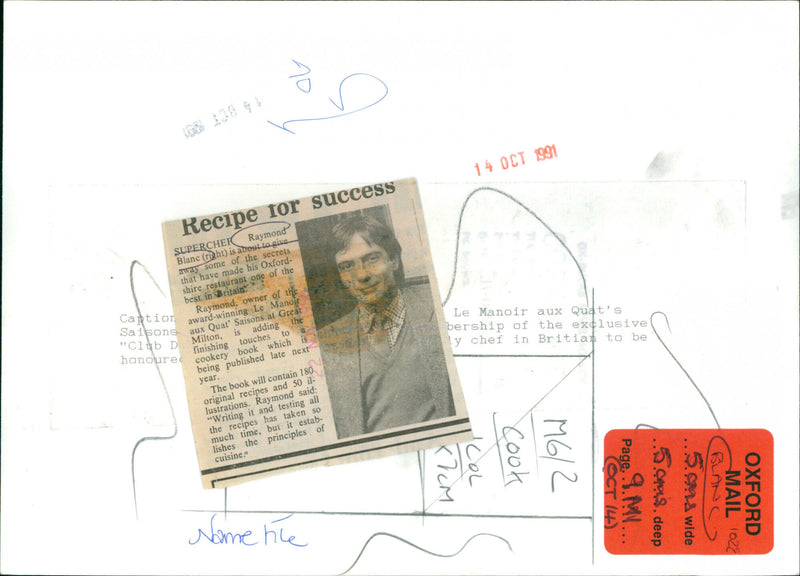 14 OCT 1991
Recipe for success
SUPERCHEF Raymond
Blanc (right) is about to give
away some of the secrets
that have made his Oxford-
shire restaurant one of the
best in Britain.
Raymond, owner of the
award-winning Le Manoir
aux Quat' Saisons at Great
Milton, is adding the
finishing touches to a
cookery book which is
being published late next
year.
The book will contain 180
original recipes and 50 il-
lustrations. Raymond said:
"Writing it and testing all
the recipes has taken so
much time, but it estab-
lishes the principles of
cuisine."
Caption Le Manoir aux Quat's
Saisons bership of the exclusive
"Club D y chef in Britian to be
honoured
M6/2
Cook
1 COL
x7cm
OXFORD
MAIL
BLANC
5 cms wide
5 cms deep
Page 9 M
(OCT 14)
Name file